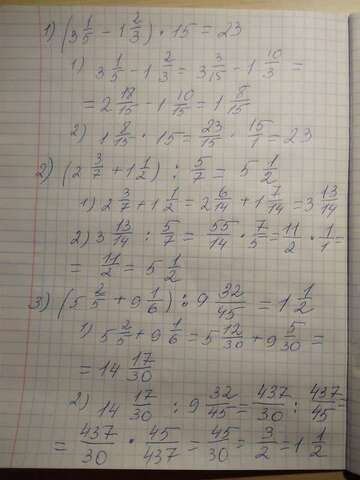 1) (3 1/5 - 1 2/3) · 15 = 23
1) 3 1/5 - 1 2/3 = 3 3/15 - 1 10/3 =
= 2 18/15 - 1 10/15 = 1 8/15
2) 1 8/15 · 15 = 23/15 · 15/1 = 23
2) (2 3/7 + 1 1/2) : 5/7 = 5 1/2
1) 2 3/7 + 1 1/2 = 2 6/14 + 1 7/14 = 3 13/14
2) 3 13/14 : 5/7 = 55/14 · 7/5 = 11/2 · 1/1 =
= 11/2 = 5 1/2
3) (5 2/5 + 9 1/6) : 9 32/45 = 1 1/2
1) 5 2/5 + 9 1/6 = 5 12/30 + 9 5/30 =
= 14 17/30
2) 14 17/30 : 9 32/45 = 437/30 : 437/45 =
= 437/30 · 45/437 = 45/30 = 3/2 = 1 1/2